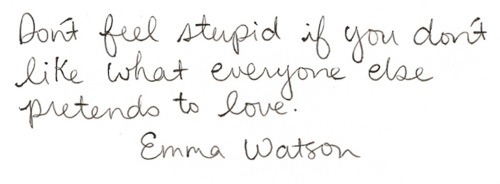 Don't feel stupid if you don't
like what everyone else
pretends to love.
Emma Watson